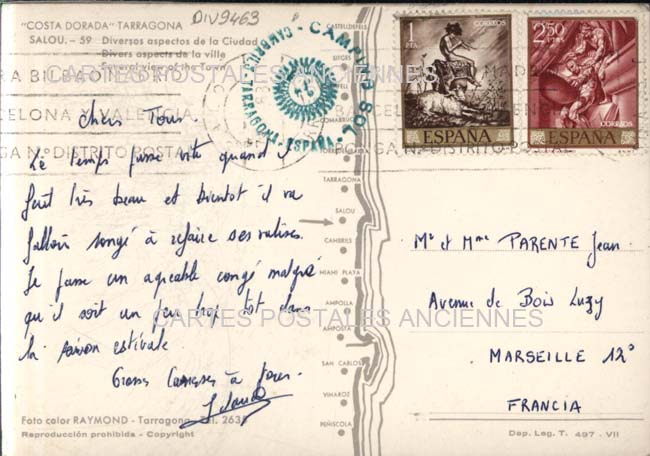 DIV9463
"COSTA DORADA" TARRAGONA
SALOU. – 59 Diversos aspectos de la Ciudad
Divers aspects de la ville
Several view of the Town
CAMPING SOL
TARRAGONA. ESPAÑA
1 PTA
CORREOS
ESPAÑA
2,50 PTAS
CORREOS
ESPAÑA
BILBAO
BARCELONA VALENCIA
PONGA N.º DISTRITO POSTAL
CARTES POSTALES ANCIENNES
Chers Tous.
Le temps passe vite quand il
fait très beau et bientôt il va
falloir songé à refaire ses valises.
Je passe un agréable congé malgré
qu'il soit un peu trop tôt dans
la saison estivale
Grosses Caresses à tous.
CASTELLDEFELS
SITGES
COMARRUGA
TARRAGONA
SALOU
CAMBRILS
MIAMI PLAYA
AMPOLLA
AMPOSTA
SAN CARLOS
VINAROZ
PEÑISCOLA
Mr et Mme PARENTE Jean
Avenue de Bois Luzy
CARTES POSTALES ANCIENNES
MARSEILLE 12º
FRANCIA
Foto color RAYMOND - Tarragona - Tel. 2635
Reproducción prohibida - Copyright
Dep. Leg. T. 497 - VII